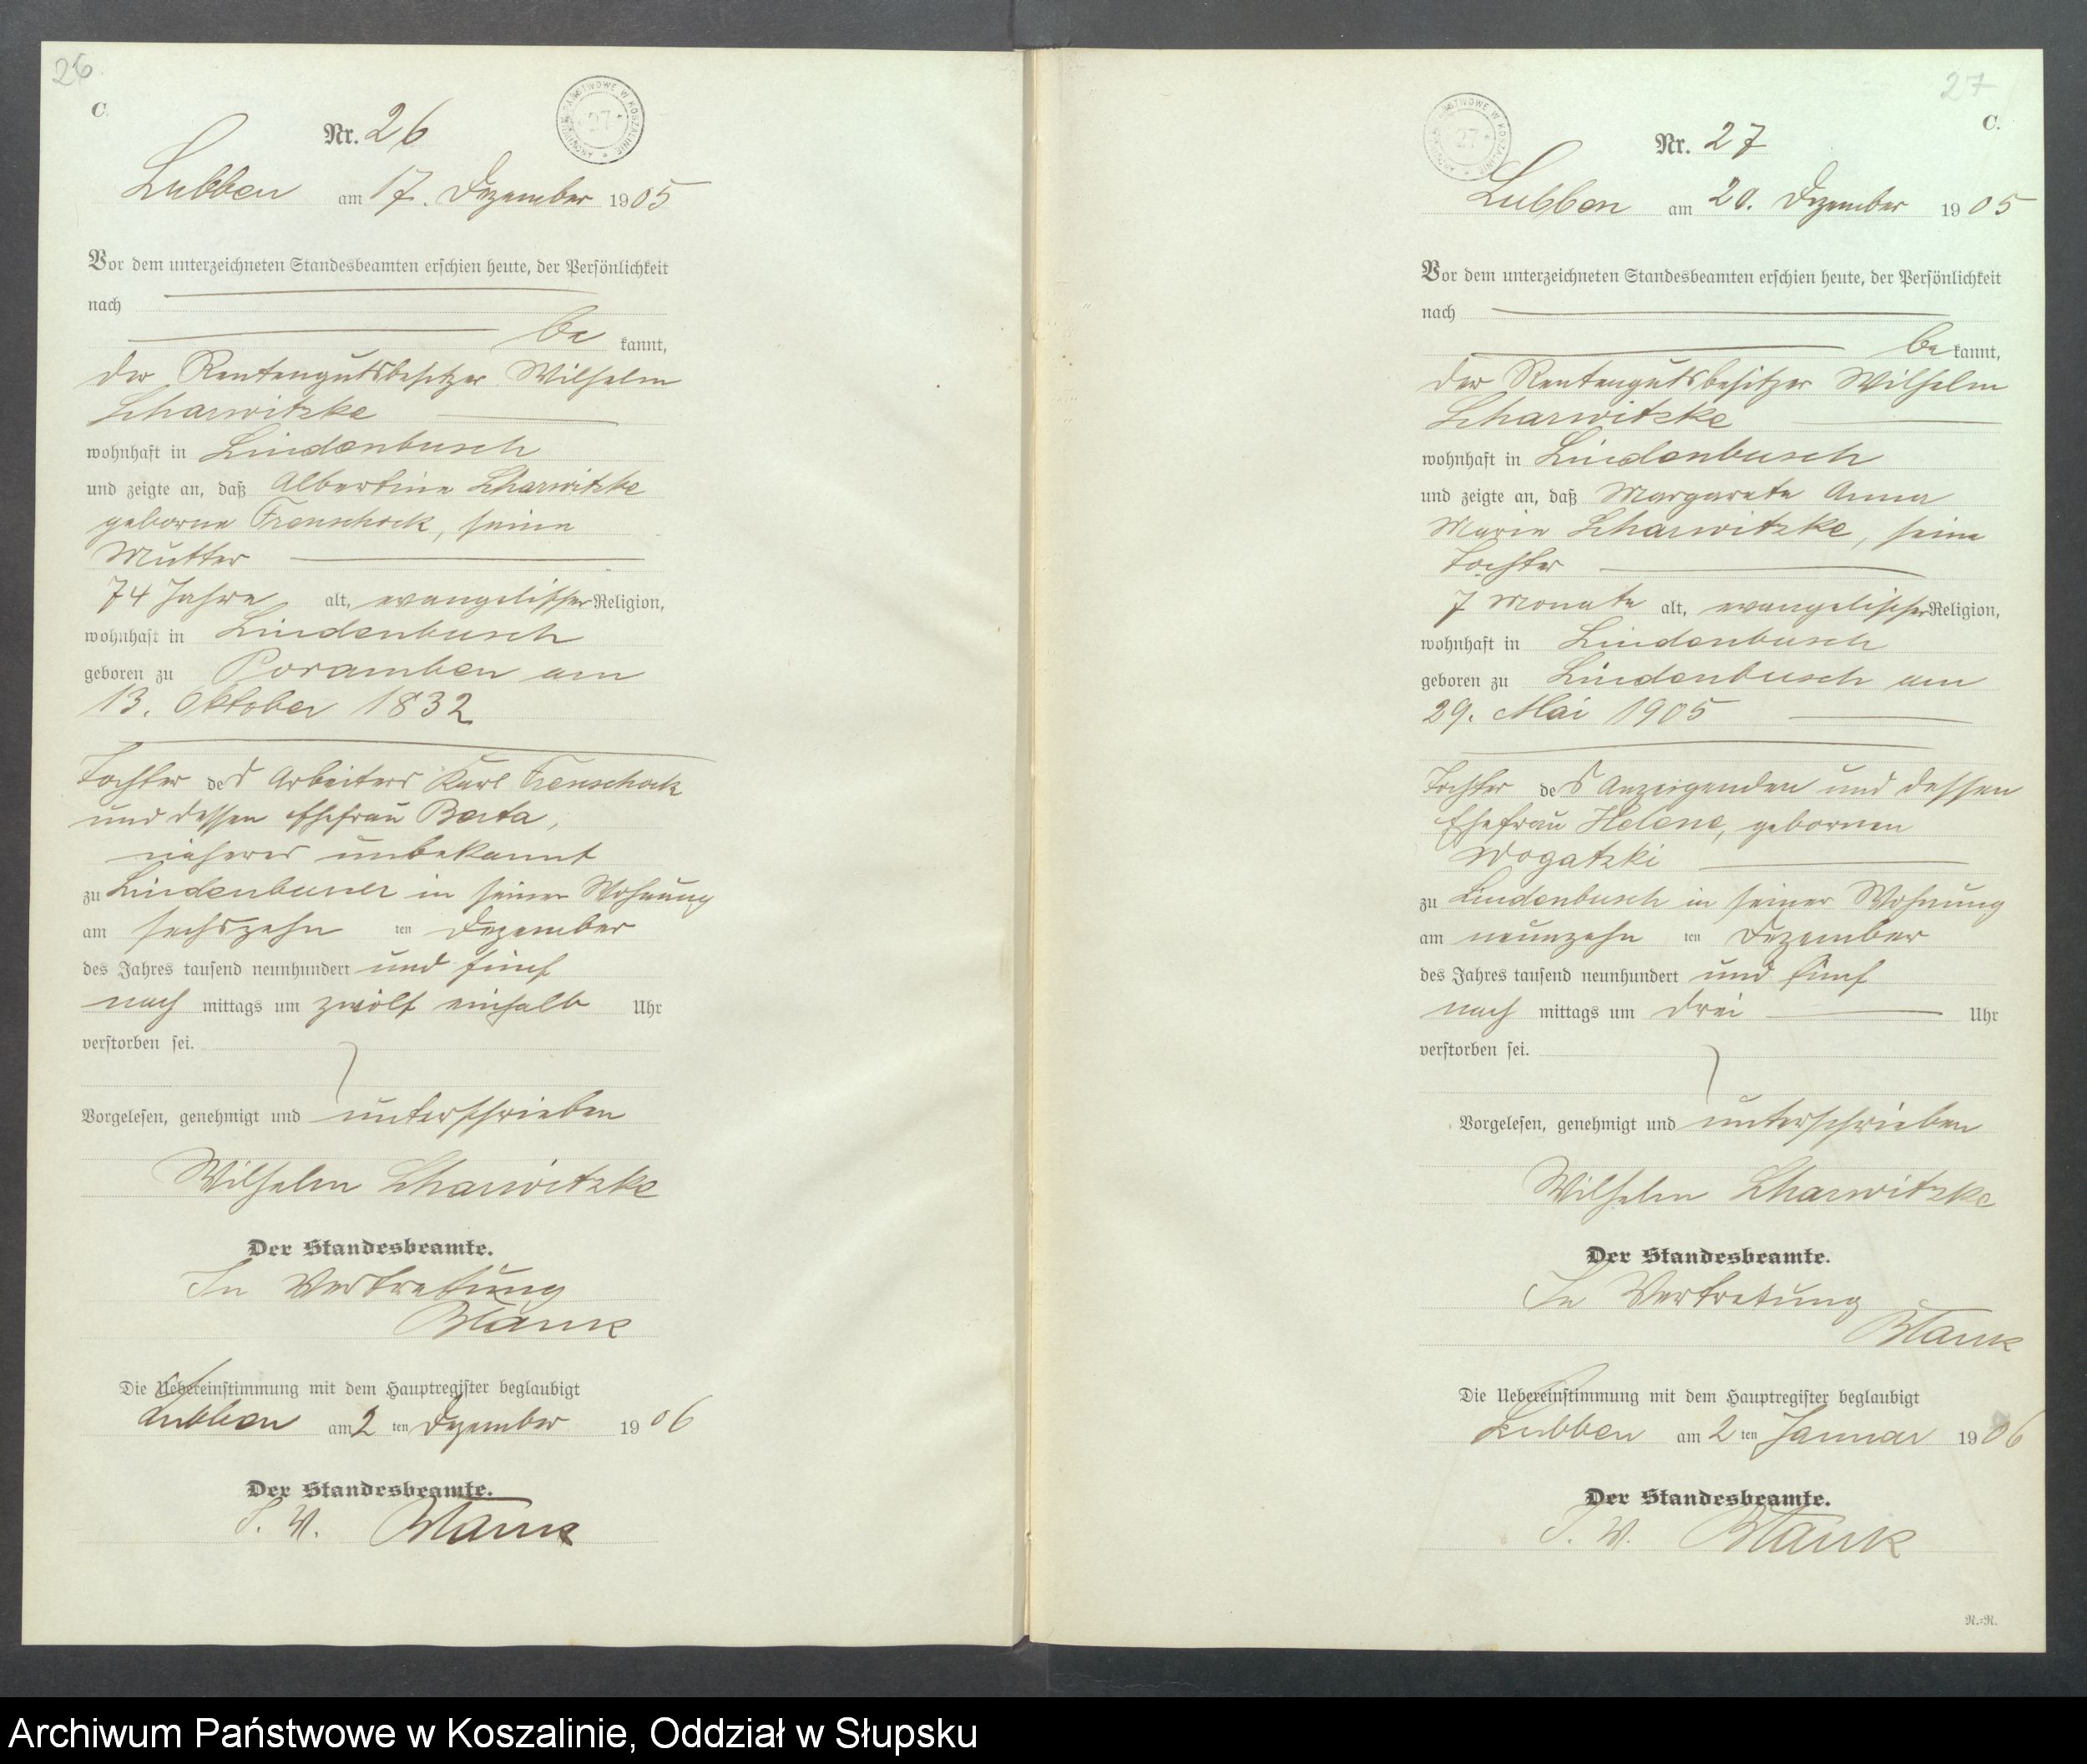 26
C.
Nr. 26
Lubben am 17. Dezember 1905
Vor dem unterzeichneten Standesbeamten erschien heute, der Persönlichkeit
nach
be kannt,
der Rentengutsbesitzer Wilhelm
Scharwitzke
wohnhaft in Lindenbusch
und zeigte an, daß Albertine Scharwitzke
geborne Frenschock, seine
Mutter
74 Jahre alt, evangelischer Religion,
wohnhaft in Lindenbusch
geboren zu Poramben am
13. Oktober 1832
Tochter des Arbeiters Karl Frenschock
und dessen Ehefrau Berta,
näheres unbekannt
zu Lindenbusch in seiner Wohnung
am sechszehn ten Dezember
des Jahres tausend neunhundert und fünf
nach mittags um zwölf einhalb Uhr
verstorben sei.
Vorgelesen, genehmigt und unterschrieben
Wilhelm Scharwitzke
Der Standesbeamte.
In Vertretung
Blank
Die Uebereinstimmung mit dem Hauptregister beglaubigt
Lubben am 2 ten Dezember 1906
Der Standesbeamte.
I. V. Blank
27
C.
ARCHIWUM PAŃSTWOWE W KOSZALINIE
27
Nr. 27
Lubben am 20. Dezember 1905
Vor dem unterzeichneten Standesbeamten erschien heute, der Persönlichkeit
nach
be kannt,
der Rentengutsbesitzer Wilhelm
Scharwitzke
wohnhaft in Lindenbusch
und zeigte an, daß Margarete Anna
Marie Scharwitzke, seine
Tochter
7 Monate alt, evangelischer Religion,
wohnhaft in Lindenbusch
geboren zu Lindenbusch am
29. Mai 1905
Tochter des Anzeigenden und dessen
Ehefrau Helene, gebornen
Wogatzki
zu Lindenbusch in seiner Wohnung
am neunzehn ten Dezember
des Jahres tausend neunhundert und fünf
nach mittags um drei Uhr
verstorben sei.
Vorgelesen, genehmigt und unterschrieben
Wilhelm Scharwitzke
Der Standesbeamte.
In Vertretung
Blank
Die Uebereinstimmung mit dem Hauptregister beglaubigt
Lubben am 2 ten Januar 1906
Der Standesbeamte.
I. V. Blank
R.-R.
Archiwum Państwowe w Koszalinie, Oddział w Słupsku